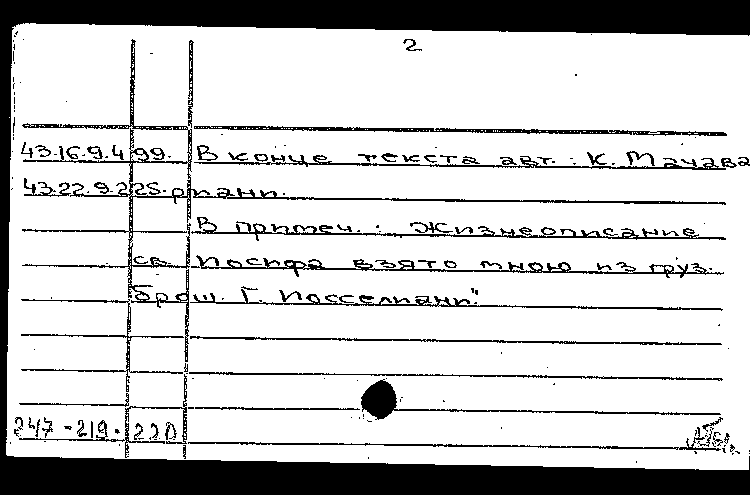 2
43.16.9.4 99. В конце текста авт.: К. Мачава
43.22.9.225. риани.
В примеч.: Жизнеописание
св. Иосифа взято мною из груз.
брош. Г. Иосселиани"
247-219. 220